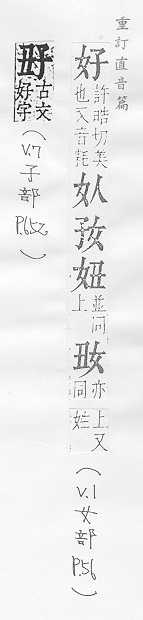 重訂直音篇
好
許晧切美
也又音耗
妞
並同
上
亦
同
上又
(V.1 女部 P.56)
古文
好字
(V.7 子部 P.652)